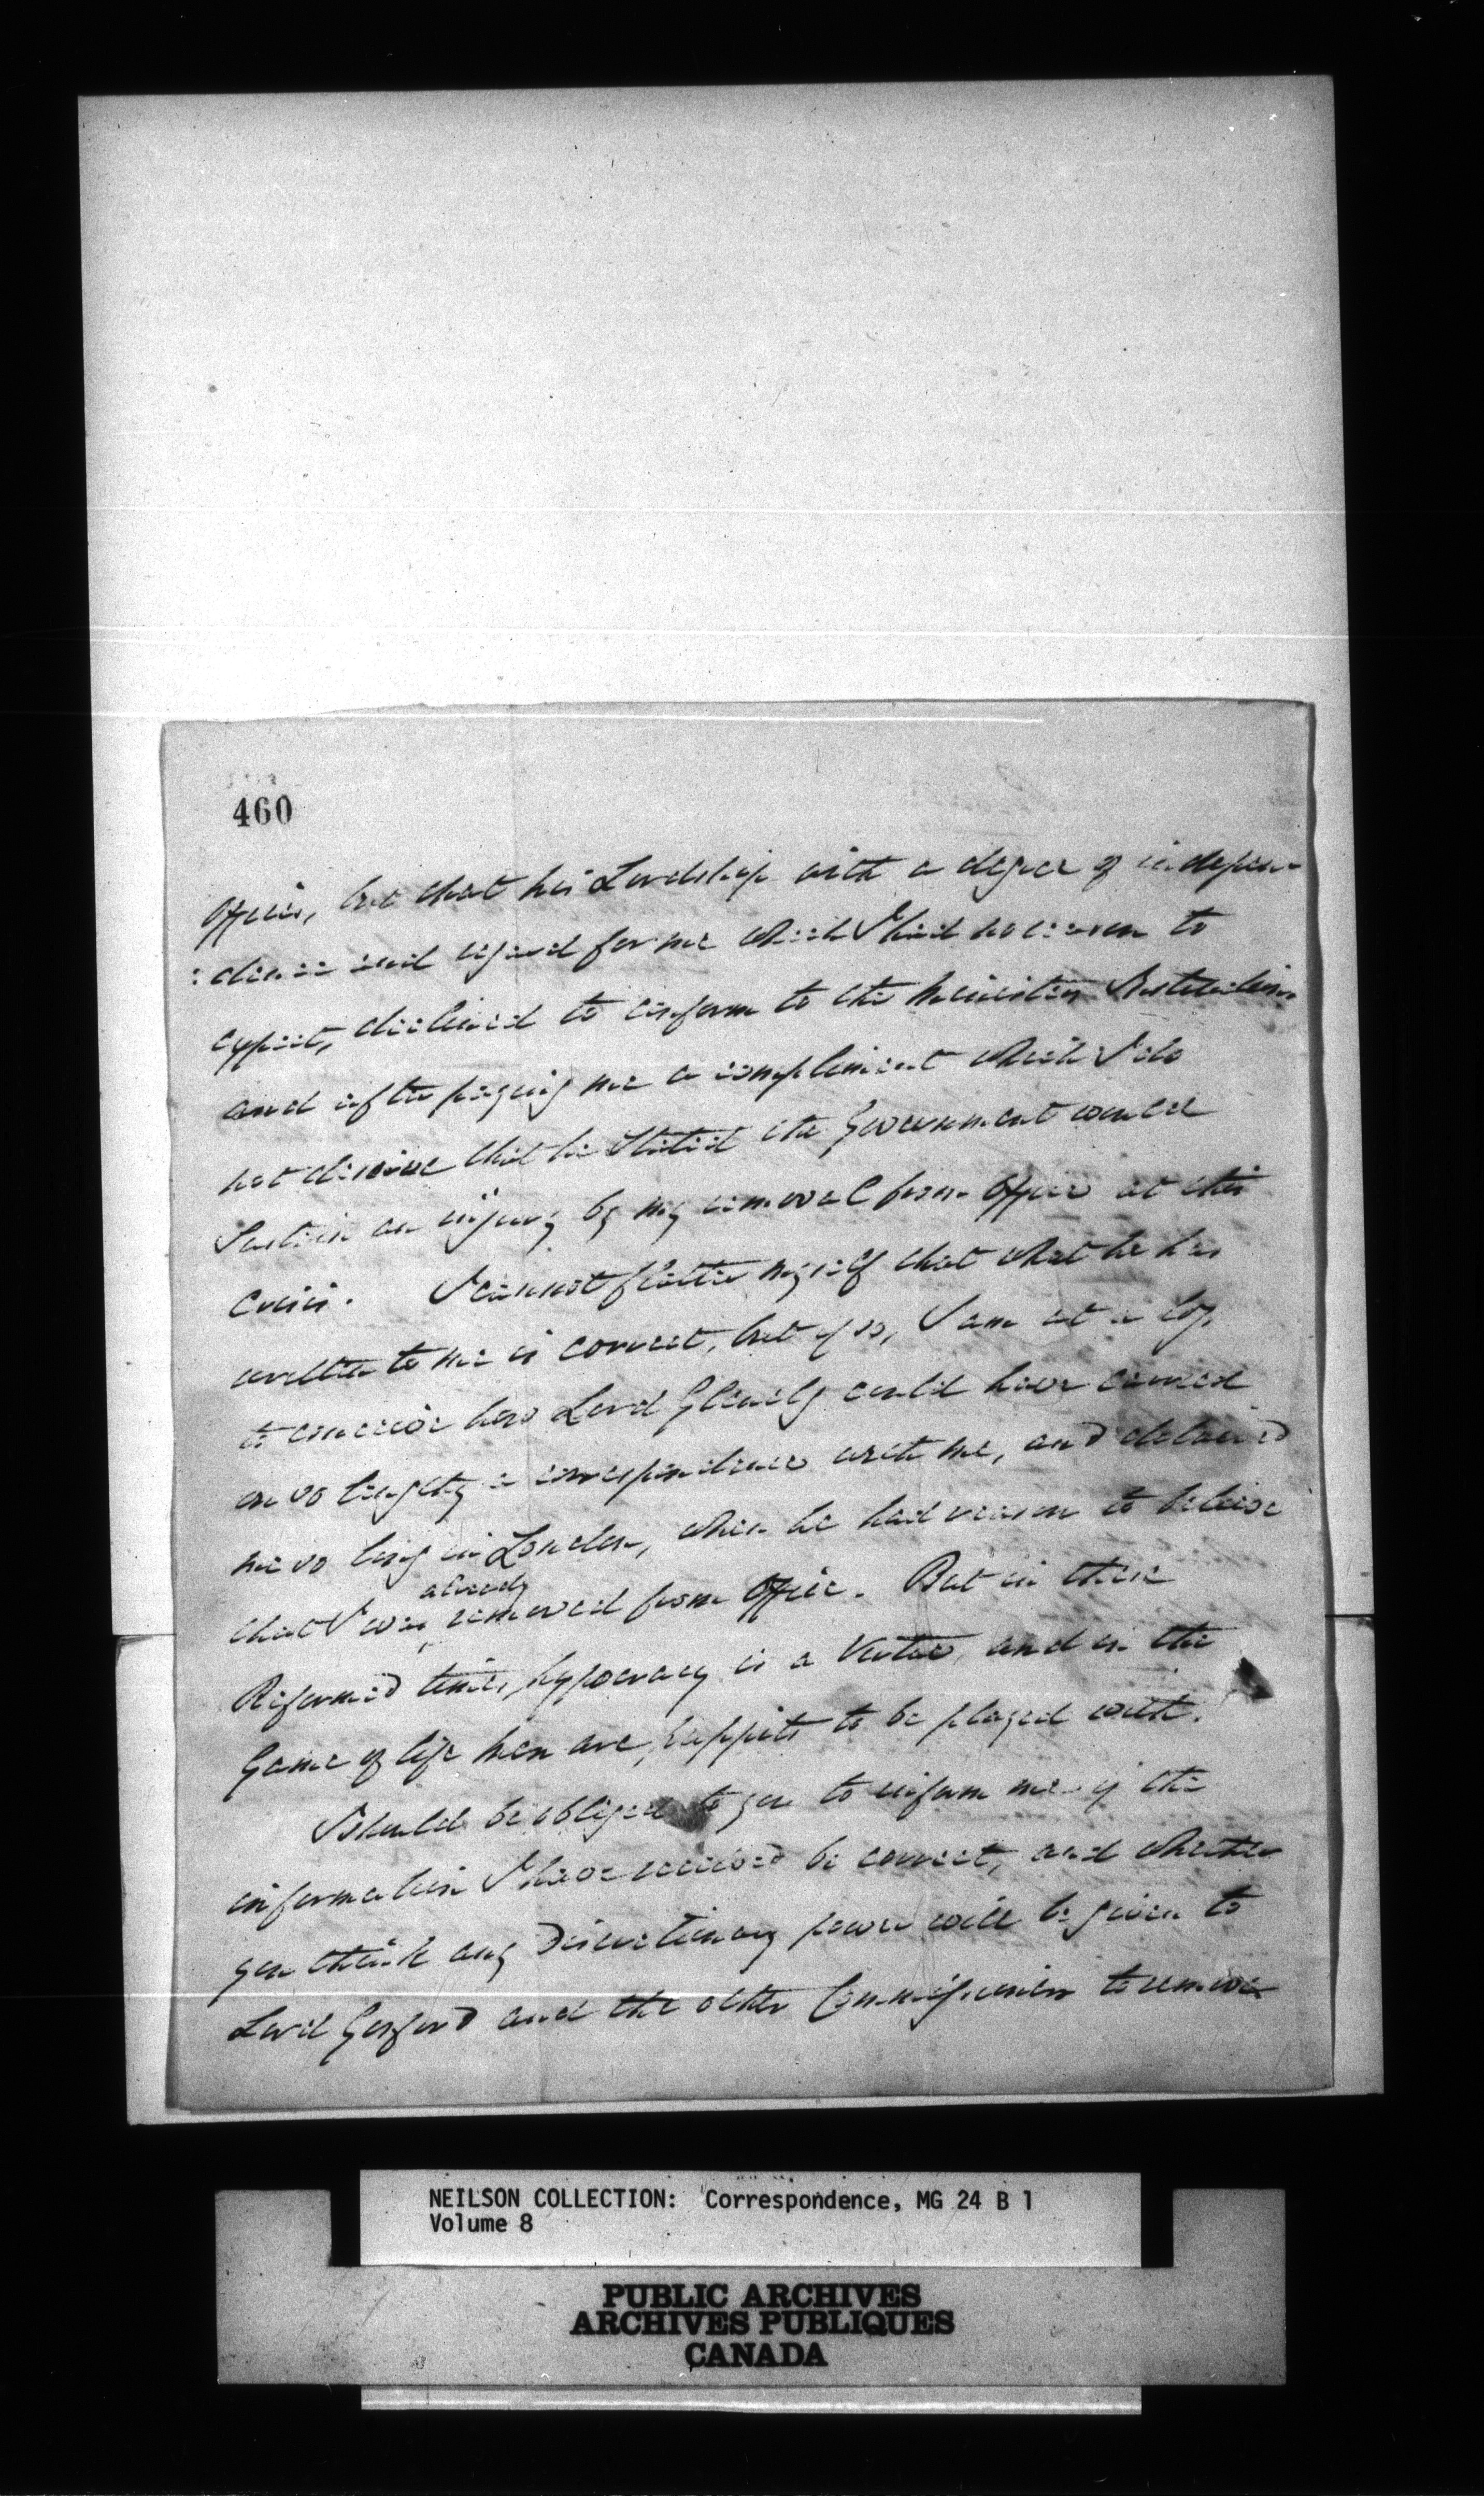 460
Office, but that his Lordship with a degree of indepen-
:dence and regard for me which I had no reason to
expect, declined to conform to the Instructions
and after paying me a compliment which I do
not deserve that he Stated the Government would
Sustain an injury by my removal from Office at this
Crisis. I cannot flatter myself that what he has
written to me is correct, but if so, I am at a loss
to conceive how Lord Glenelg could have carried
on so lengthy a correspondence with me, and detained
me so long in London, when he had reason to beleive
that I was already removed from Office. But in these
Reformed times, hypocracy is a Virtue, and in the
Game of life men are puppits to be played with.
I should be obliged to you to inform me if the
information I have received be correct, and whether
you think any Discretionary power will be given to
Lord Gosford and the other Commissioners to remove
NEILSON COLLECTION: Correspondence, MG 24 B 1
Volume 8
PUBLIC ARCHIVES
ARCHIVES PUBLIQUES
CANADA